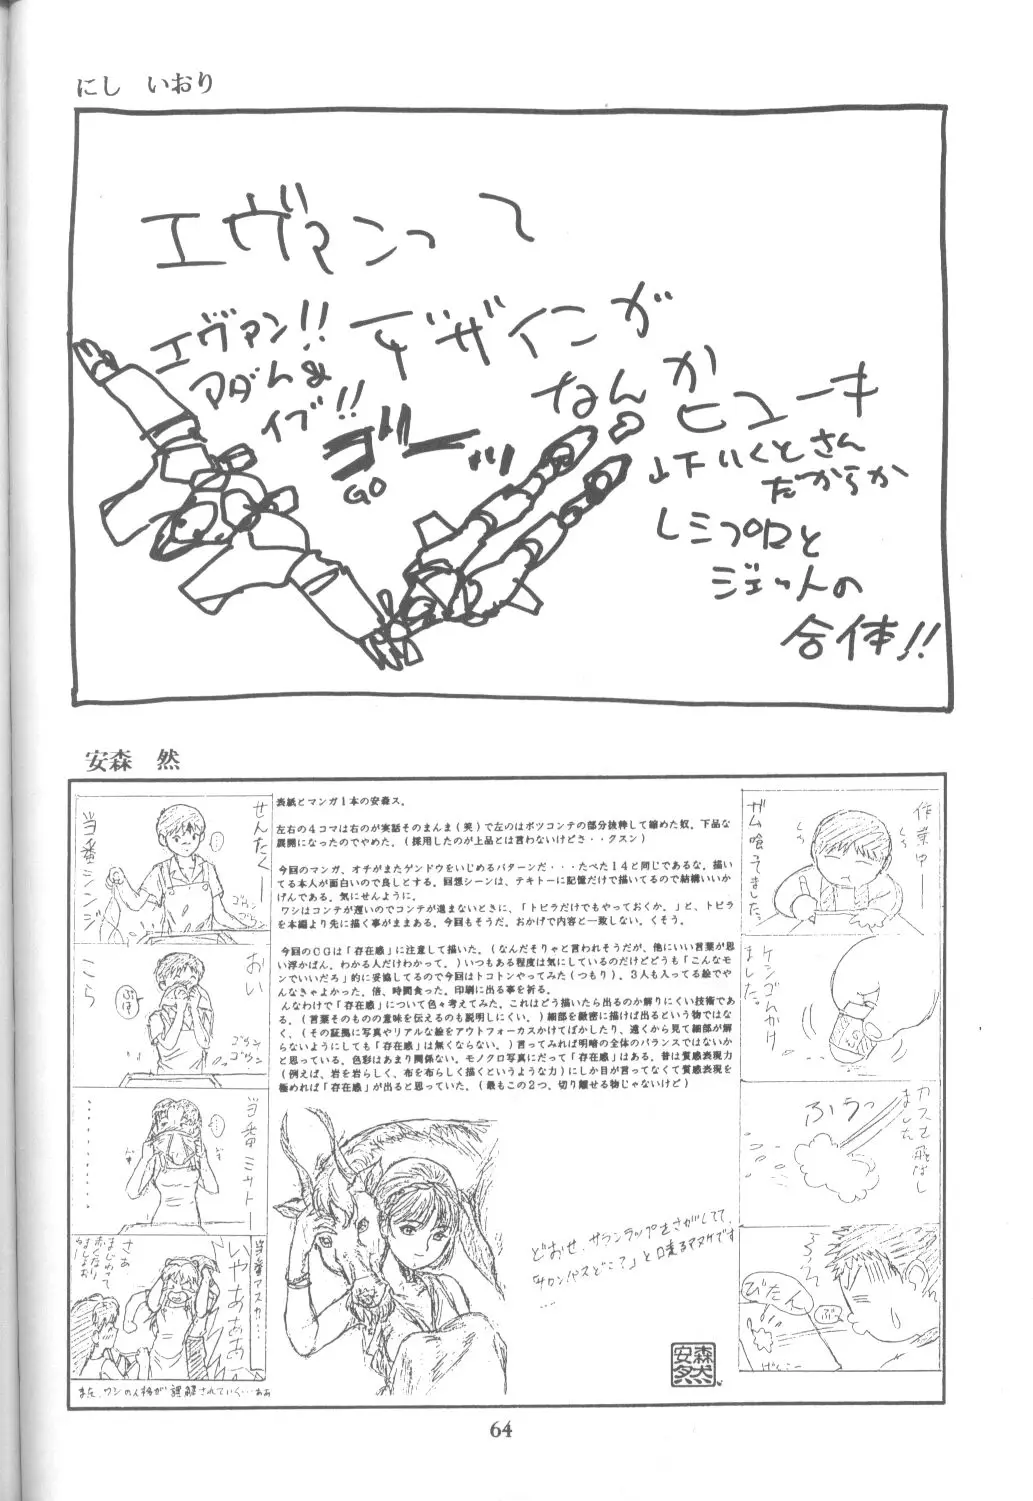 にし いおり
エヴァンって
デザインが
なんか
ヒューキ
山下いくとさん
だからか
レミプロと
ジェットの
合体!!
エヴァン!!
アダム&
イブ!!
ゴーッ
GO
安森 然
表紙とマンガ1本の安森ス。
左右の4コマは右のが実話そのまんま(笑)で左のはボツコンテの部分抜粋して縮めた奴。下品な
展開になったのでやめた。(採用したのが上品とは言わないけどさ・・クスン)
今回のマンガ、オチがまたゲンドウをいじめるパターンだ・・・たべた14と同じであるな。描い
てる本人が面白いので良しとする。回想シーンは、テキトーに記憶だけで描いてるので結構いいか
げんである。気にせんように。
ワシはコンテが遅いのでコンテが進まないときに、「トビラだけでもやっておくか。」と、トビラ
を本編より先に描く事がままある。今回もそうだ。おかげで内容と一致しない。くそう。
今回のCGは「存在感」に注意して描いた。(なんだそりゃと言われそうだが、他にいい言葉が思
い浮かばん。わかる人だけわかって。)いつもある程度は気にしているのだけどどうも「こんなモ
ンでいいだろ」的に妥協してるので今回はトコトンやってみた(つもり)。3人も入ってる絵でや
んなきゃよかった。倍、時間食った。印刷に出る事を祈る。
んなわけで「存在感」について色々考えてみた。これはどう描いたら出るのか解りにくい技術であ
る。(言葉そのものの意味を伝えるのも説明しにくい。)細部を緻密に描けば出るという物ではな
く、(その証拠に写真やリアルな絵をアウトフォーカスかけてぼかしたり、遠くから見て細部が解
らないようにしても「存在感」は無くならない。)言ってみれば明暗の全体のバランスではないか
と思っている。色彩はあまり関係ない。モノクロ写真にだって「存在感」はある。昔は質感表現力
(例えば、岩を岩らしく、布を布らしく描くというような力)にしか目が言ってなくて質感表現を
極めれば「存在感」が出ると思っていた。(最もこの2つ、切り離せる物じゃないけど)
作業中――
ガム喰ってました。
ケシゴムかけ
ました。
カスを飛ばし
ました
ふうっ
びたん
ぷっ
げんこー
せんたく――
当番シンジ
ゴウン
ゴウン
おい
こら
ゴウン
ゴウン
当番ミサトー
・・・・・・・・
当番アスカ・・・
いやああああ
さあ
また、ワシの人格が誤解されていく…ああ
どおせ、サランラップをさがしてて、
「サロンパスどこ?」と口走るマヌケです
・・・
安森然
64